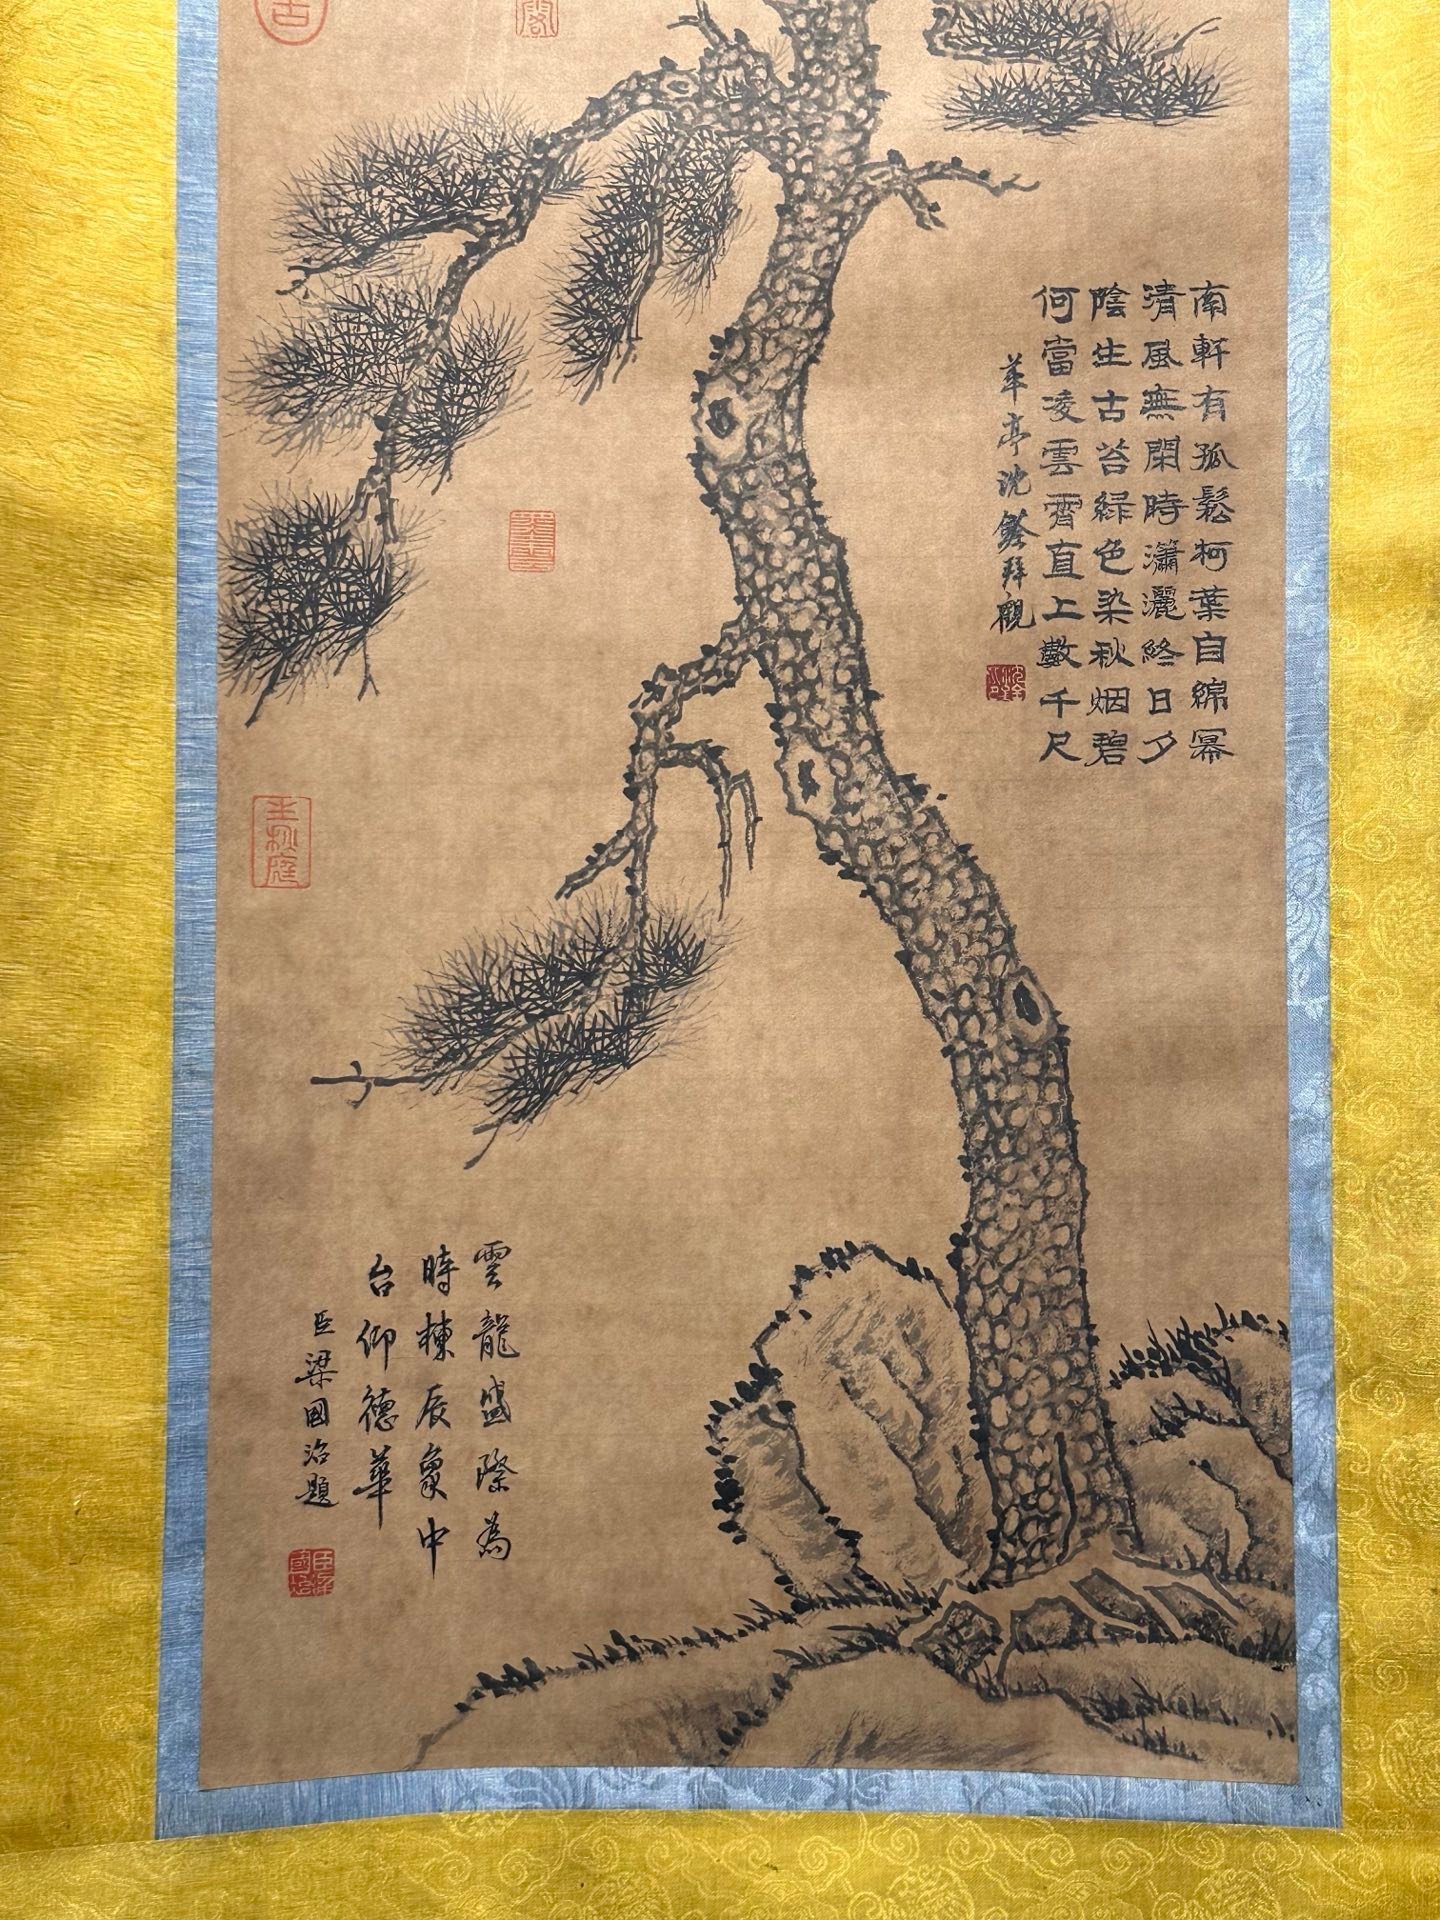 南軒有孤鬆柯葉自綿冪
清風無閑時瀟灑終日夕
陰生古苔緑色染秋烟碧
何當凌雲霄直上數千尺
華亭沈荃拜觀
雲龍盛際為
時棟辰象中
台仰德華
臣梁國治題
古
閣